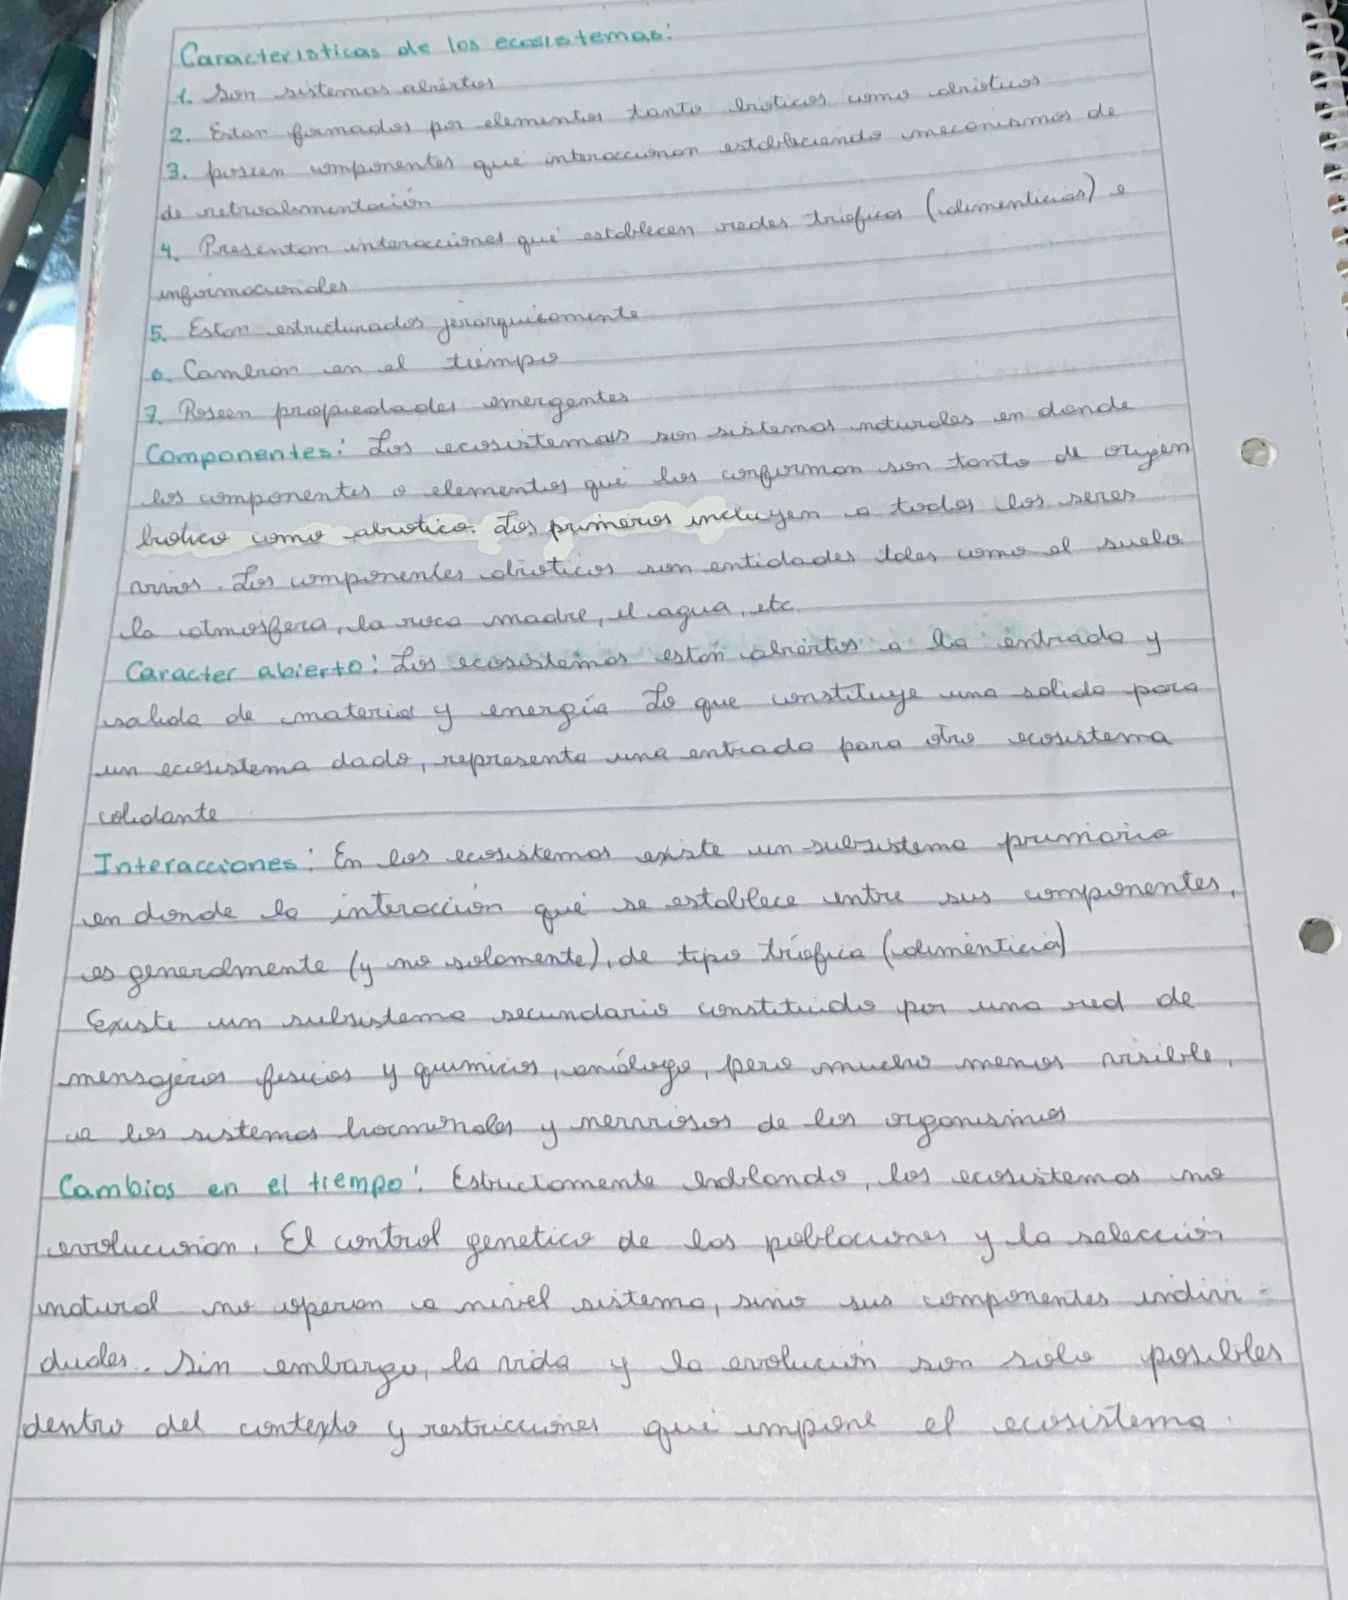 Caracteristicas de los ecosistemas:
1. Son sistemas abiertos
2. Estan formados por elementos tanto bioticos como abioticos
3. poseen componentes que interaccionan estableciendo mecanismos de
de retroalimentación
4. Presentan interacciones que establecen redes tróficas (alimenticias) e
informacionales
5. Estan estructurados jerarquicamente
6. Cambian en el tiempo
7. Poseen propiedades emergentes
Componentes: Los ecosistemas son sistemas naturales en donde
los componentes o elementos que los conforman son tanto de origen
biotico como abiotico. Los primeros incluyen a todos los seres
vivos. Los componentes abioticos son entidades tales como el suelo
la atmosfera, la roca madre, el agua, etc.
Caracter abierto: Los ecosistemas están abiertos a la entrada y
salida de materia y energía Lo que constituye una salida para
un ecosistema dado, representa una entrada para otro ecosistema
colidante
Interacciones: En los ecosistemas existe un subsistema primario
en donde la interacción que se establece entre sus componentes,
es generalmente (y no solamente), de tipo trófica (alimenticia)
Existe un subsistema secundario constituido por una red de
mensajeros fisicos y quimicos, análogo, pero mucho menos visible,
a los sistemas hormonales y nerviosos de los organismos
Cambios en el tiempo: Estrictamente hablando, los ecosistemas no
evolucionan. El control genetico de las poblaciones y la selección
natural no operan a nivel sistema, sino sus componentes indivi-
duales. Sin embargo, la vida y la evolución son solo posibles
dentro del contexto y restricciones que impone el ecosistema.